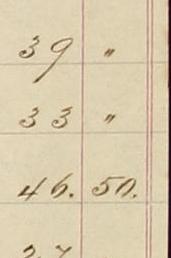 39 "
33 "
46. 50.